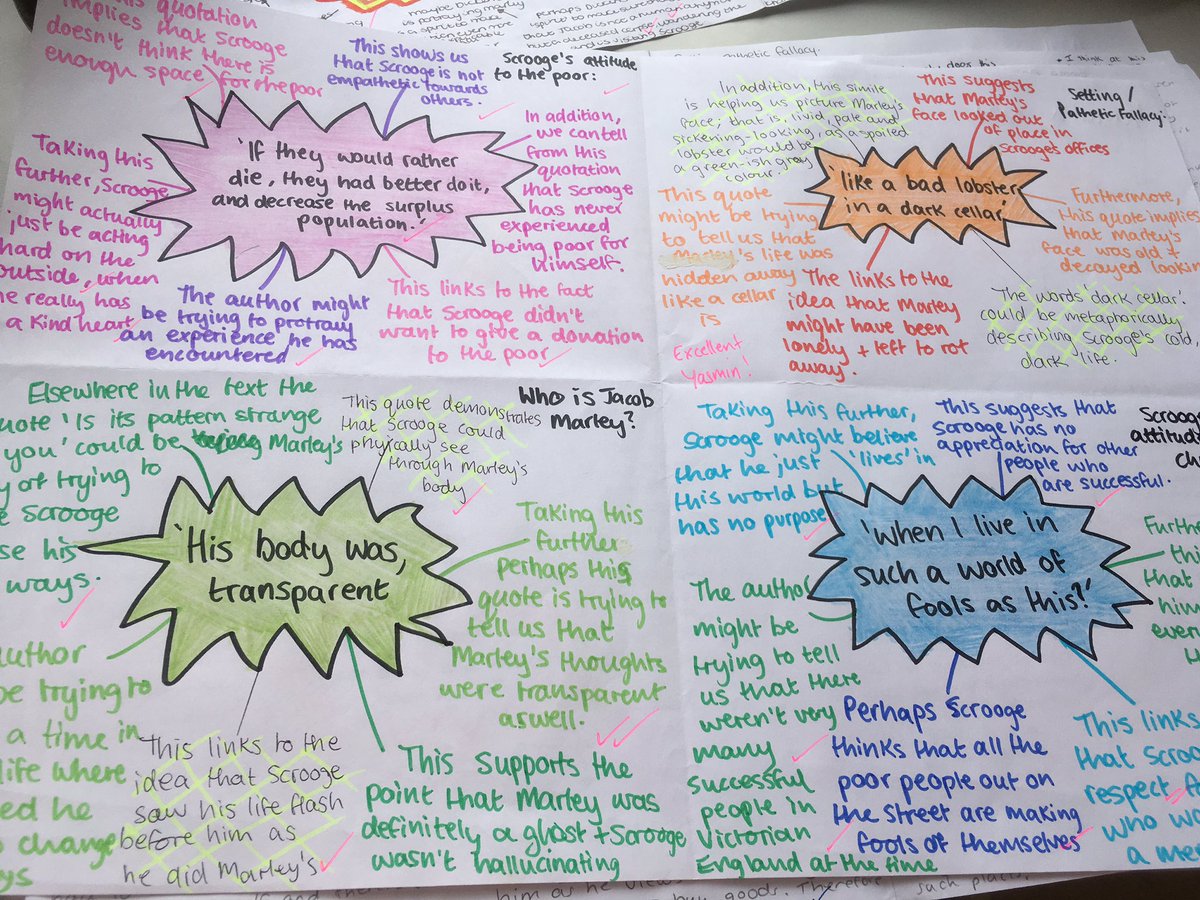 quotation
implies that Scrooge
doesn't think there is
enough space for the poor
This shows us
that Scrooge is not
empathetic towards
others.
Scrooge's attitude
to the poor:
Taking this
further, Scrooge
might actually
just be acting
hard on the
outside, when
he really has
a kind heart
'If they would rather
die, they had better do it,
and decrease the surplus
population.'
In addition,
we can tell
from this
quotation
that Scrooge
has never
experienced
being poor for
himself.
The author might
be trying to protray
an experience he has
encountered
This links to the fact
that Scrooge didn't
want to give a donation
to the poor
In addition, this simile
is helping us picture Marley's
face, that is, livid, pale and
sickening-looking, as a spoiled
lobster would be
a green-ish gray
colour.
This suggests
that Marley's
face looked out
of place in
scrooge's offices
Setting/
Pathetic Fallacy.
This quote
might be trying
to tell us that
Marley's life was
hidden away
like a cellar
is
'like a bad lobster
in a dark cellar'
Furthermore,
this quote implies
that Marley's
face was old +
decayed looking
The links to the
idea that Marley
might have been
lonely + left to rot
away.
The words 'dark cellar'
could be metaphorically
describing Scrooge's cold,
dark life.
Excellent
Yasmin!
Elsewhere in the text the
quote 'Is its pattern strange
you' could be Marley's
of trying to
Scrooge
his
ways.
This quote demonstrates
that Scrooge could
physically see
through Marley's
body
Who is Jacob
Marley?
'His body was,
transparent
Taking this
further
perhaps this
quote is trying to
tell us that
Marley's thoughts
were transparent
aswell.
author
be trying to
a time in
life where
he
change
This links to the
idea that Scrooge
saw his life flash
before him as
he did Marley's
This supports the
point that Marley was
definitely a ghost + Scrooge
wasn't hallucinating
Taking this further,
Scrooge might believe
that he just 'lives' in
this world but
has no purpose
This suggests that
Scrooge has no
appreciation for other
people who
are successful.
'When I live in
such a world of
fools as this?'
The author
might be
trying to tell
us that there
weren't very
many
successful
people in
Victorian
England at the time
Perhaps Scrooge
thinks that all the
poor people out on
the street are making
fools of themselves
this
that
This links
that
respect
who
a